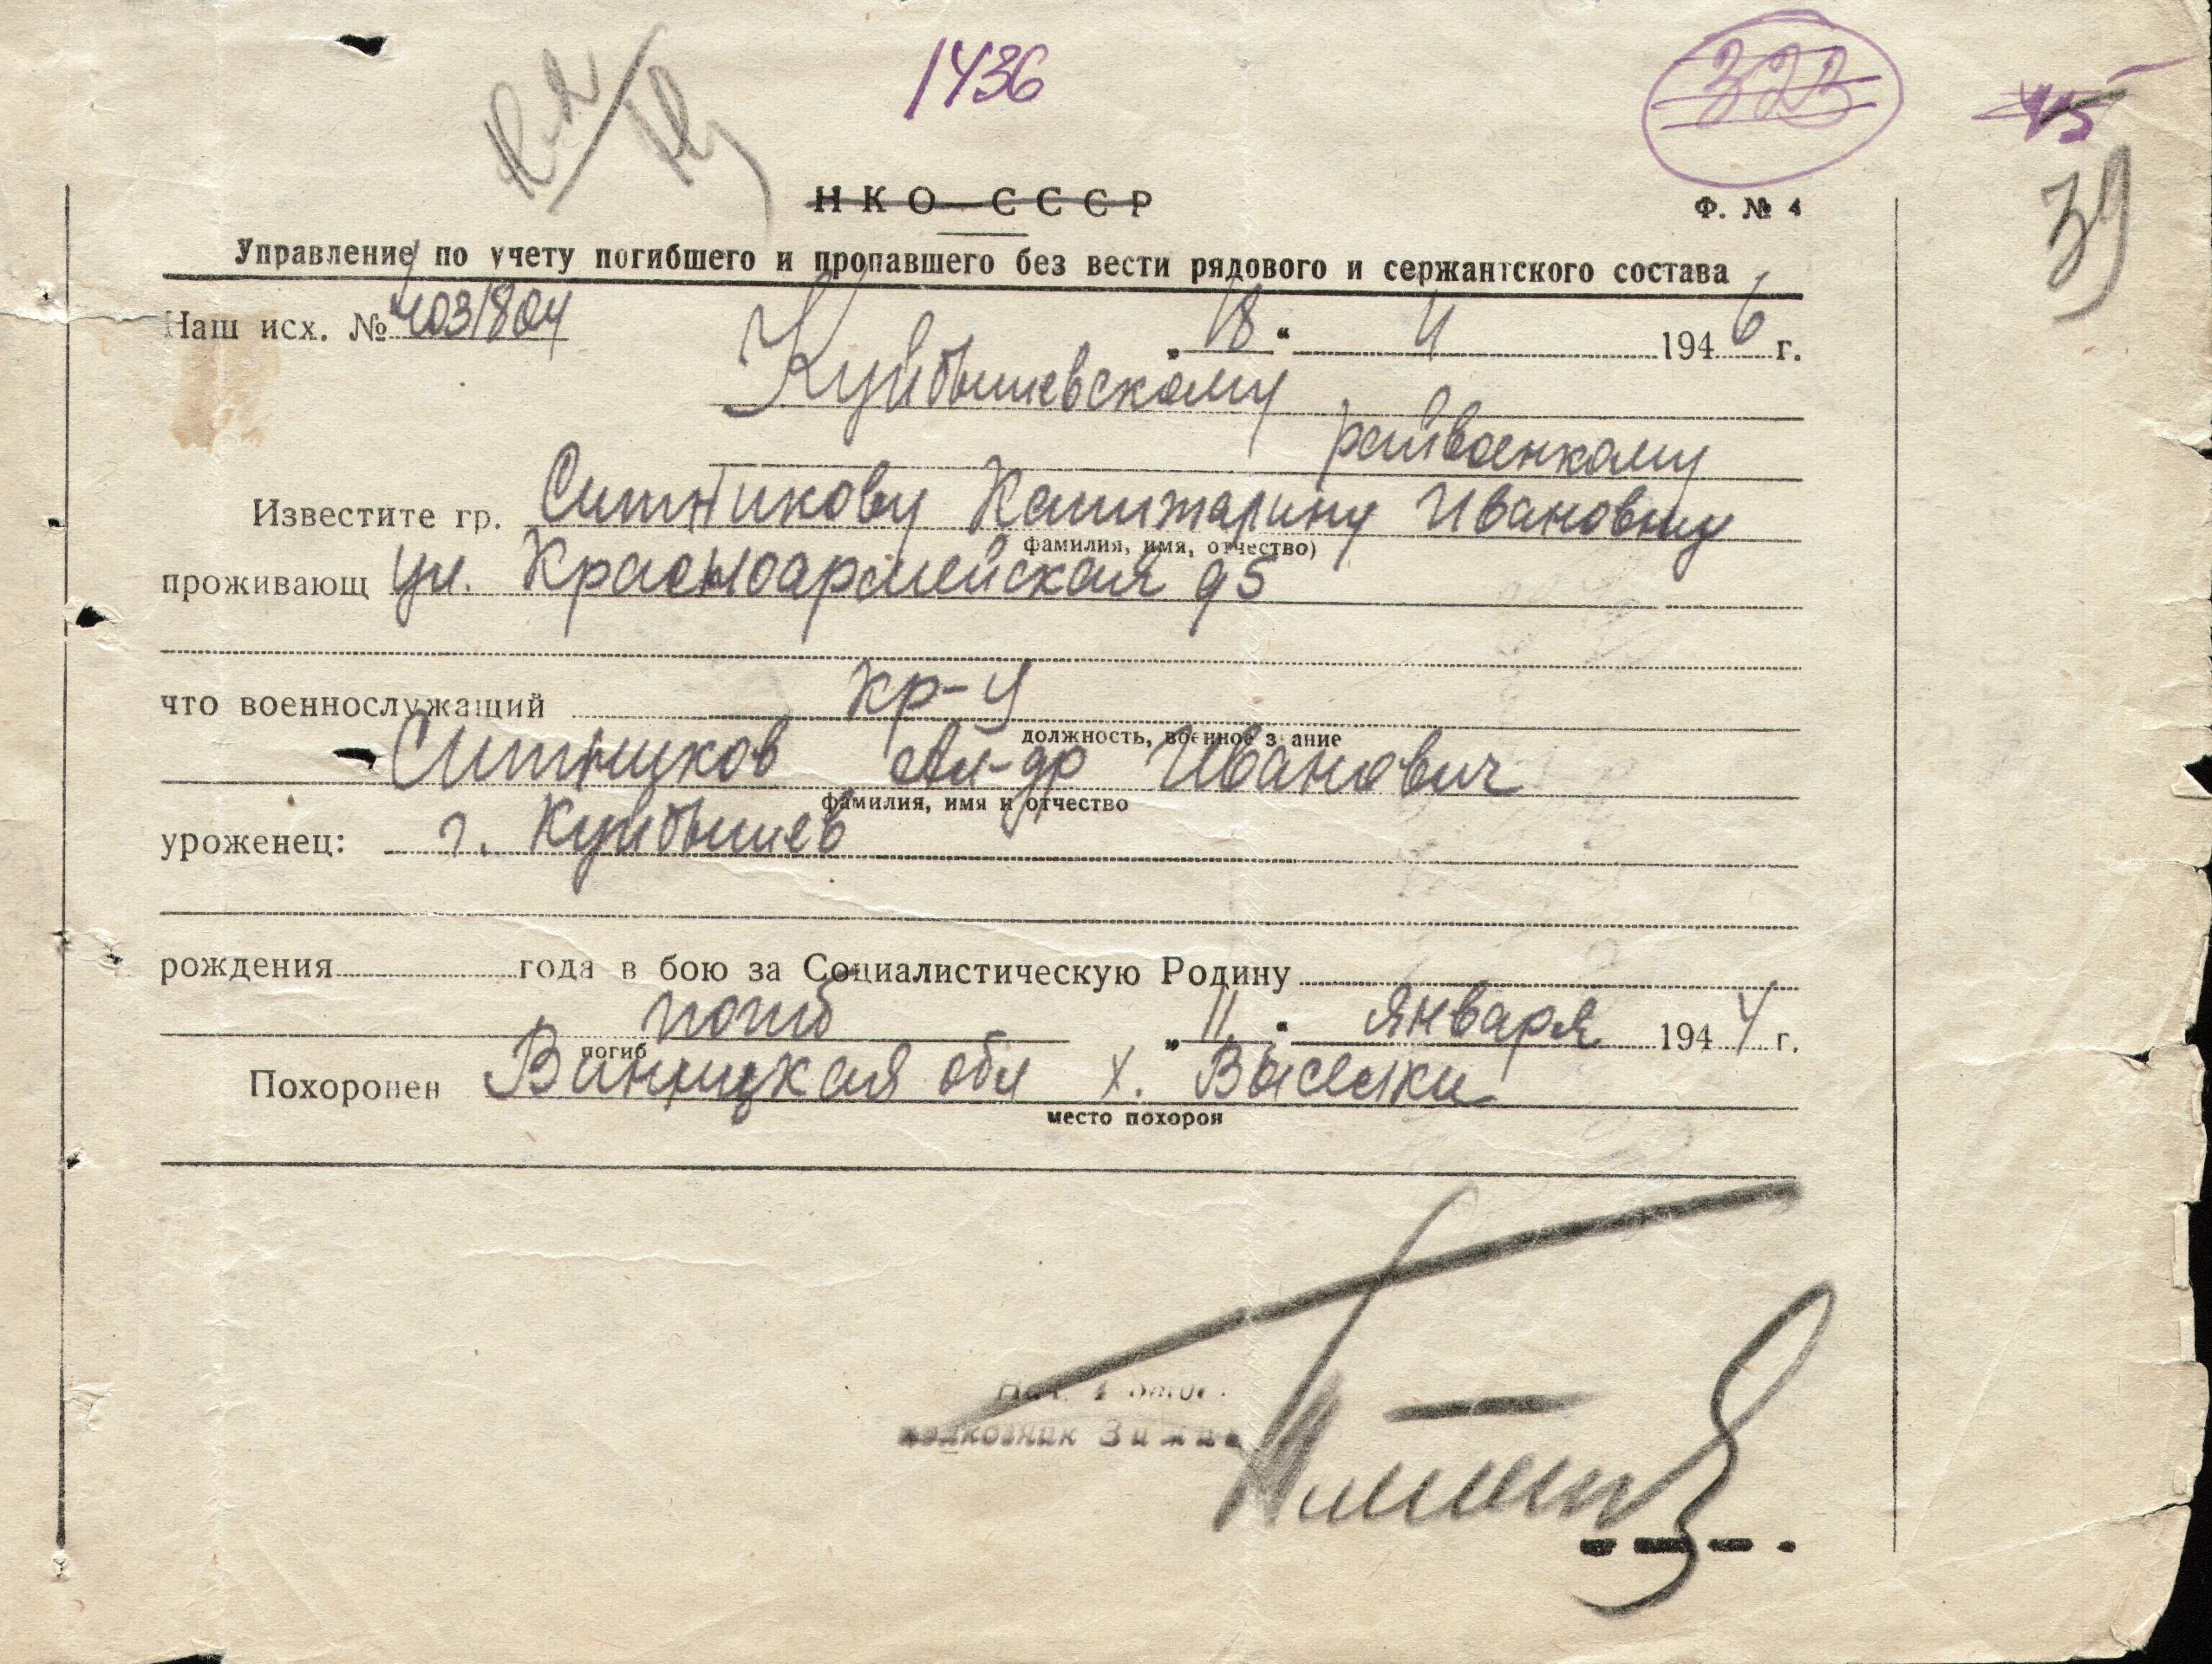 1436
323
45
39
НКО—СССР
Ф. № 4
Управление по учету погибшего и пропавшего без вести рядового и сержантского состава
Наш исх. № 403/804 „18“ 4 1946 г.
Куйбышевскому
райвоенкому
Известите гр. Ситникову Капитарину Ивановну
фамилия, имя, отчество)
проживающ ул. Красноармейская 95
что военнослужащий кр-ц
должность, военное звание
Ситников Ал-др Иванович
фамилия, имя и отчество
уроженец: г. Куйбышев
рождения года в бою за Социалистическую Родину
погиб „11“ января 1944 г.
погиб
Похоронен Винницкая обл х. Выселки
место похорон
полковник